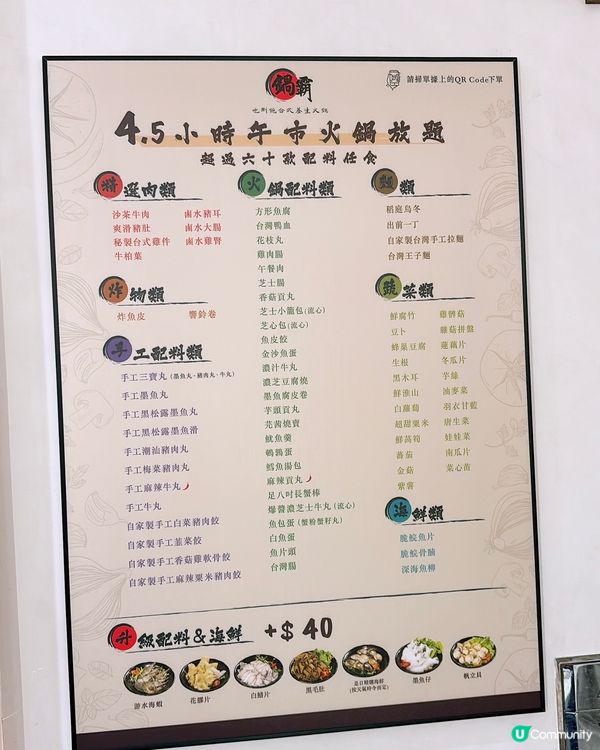 鍋霸
吃到飽台式養生火鍋
請掃單據上的QR Code下單
4.5小時午市火鍋放題
超過六十款配料任食
精選肉類
沙茶牛肉
爽滑豬肚
秘製台式雞件
牛柏葉
鹵水豬耳
鹵水大腸
鹵水雞腎
炸物類
炸魚皮
響鈴卷
手工配料類
手工三寶丸 (墨魚丸、豬肉丸、牛丸)
手工墨魚丸
手工黑松露墨魚丸
手工黑松露墨魚滑
手工潮汕豬肉丸
手工梅菜豬肉丸
手工麻辣牛丸
手工牛丸
自家製手工白菜豬肉餃
自家製手工韮菜餃
自家製手工香菇雞軟骨餃
自家製手工麻辣粟米豬肉餃
火鍋配料類
方形魚腐
台灣鴨血
花枝丸
雞肉腸
午餐肉
芝士腸
香菇貢丸
芝士小籠包 (流心)
芝心包 (流心)
魚皮餃
金沙魚蛋
濃汁牛丸
濃芝豆腐燒
墨魚腐皮卷
芋頭貢丸
芫茜燒賣
魷魚羹
鵪鶉蛋
鱈魚湯包
麻辣貢丸
足八吋長蟹棒
爆醬濃芝士牛丸 (流心)
魚包蛋 (蟹粉蟹籽丸)
白魚蛋
魚片頭
台灣腸
麵類
稻庭烏冬
出前一丁
自家製台灣手工拉麵
台灣王子麵
蔬菜類
鮮腐竹
豆卜
蜂巢豆腐
生根
黑木耳
鮮淮山
白蘿蔔
超甜粟米
鮮萵筍
蕃茄
金菇
紫薯
雞髀菇
雜菇拼盤
蓮藕片
冬瓜片
芋絲
油麥菜
羽衣甘藍
唐生菜
娃娃菜
南瓜片
菜心苗
海鮮類
脆鯇魚片
脆鯇骨腩
深海魚柳
升級配料&海鮮 +$40
游水海蝦
花膠片
白鱔片
黑毛肚
是日精選海鮮
(按天氣時令而定)
墨魚仔
帆立貝
U Community